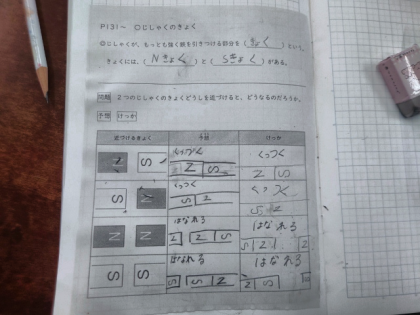 P131～ ○じしゃくのきょく
○じしゃくが、もっとも強く鉄を引きつける部分を(きょく)という。
きょくには、(Nきょく)と(Sきょく)がある。
問題 2つのじしゃくのきょくどうしを近づけると、どうなるのだろうか。
予想 けっか
近づけるきょく 予想 けっか
くっつく くっつく
N S N S N S
くっつく くっつく
S N S N S N
はなれる はなれる
N N N Z S S N N
はなれる はなれる
S S S S N N S